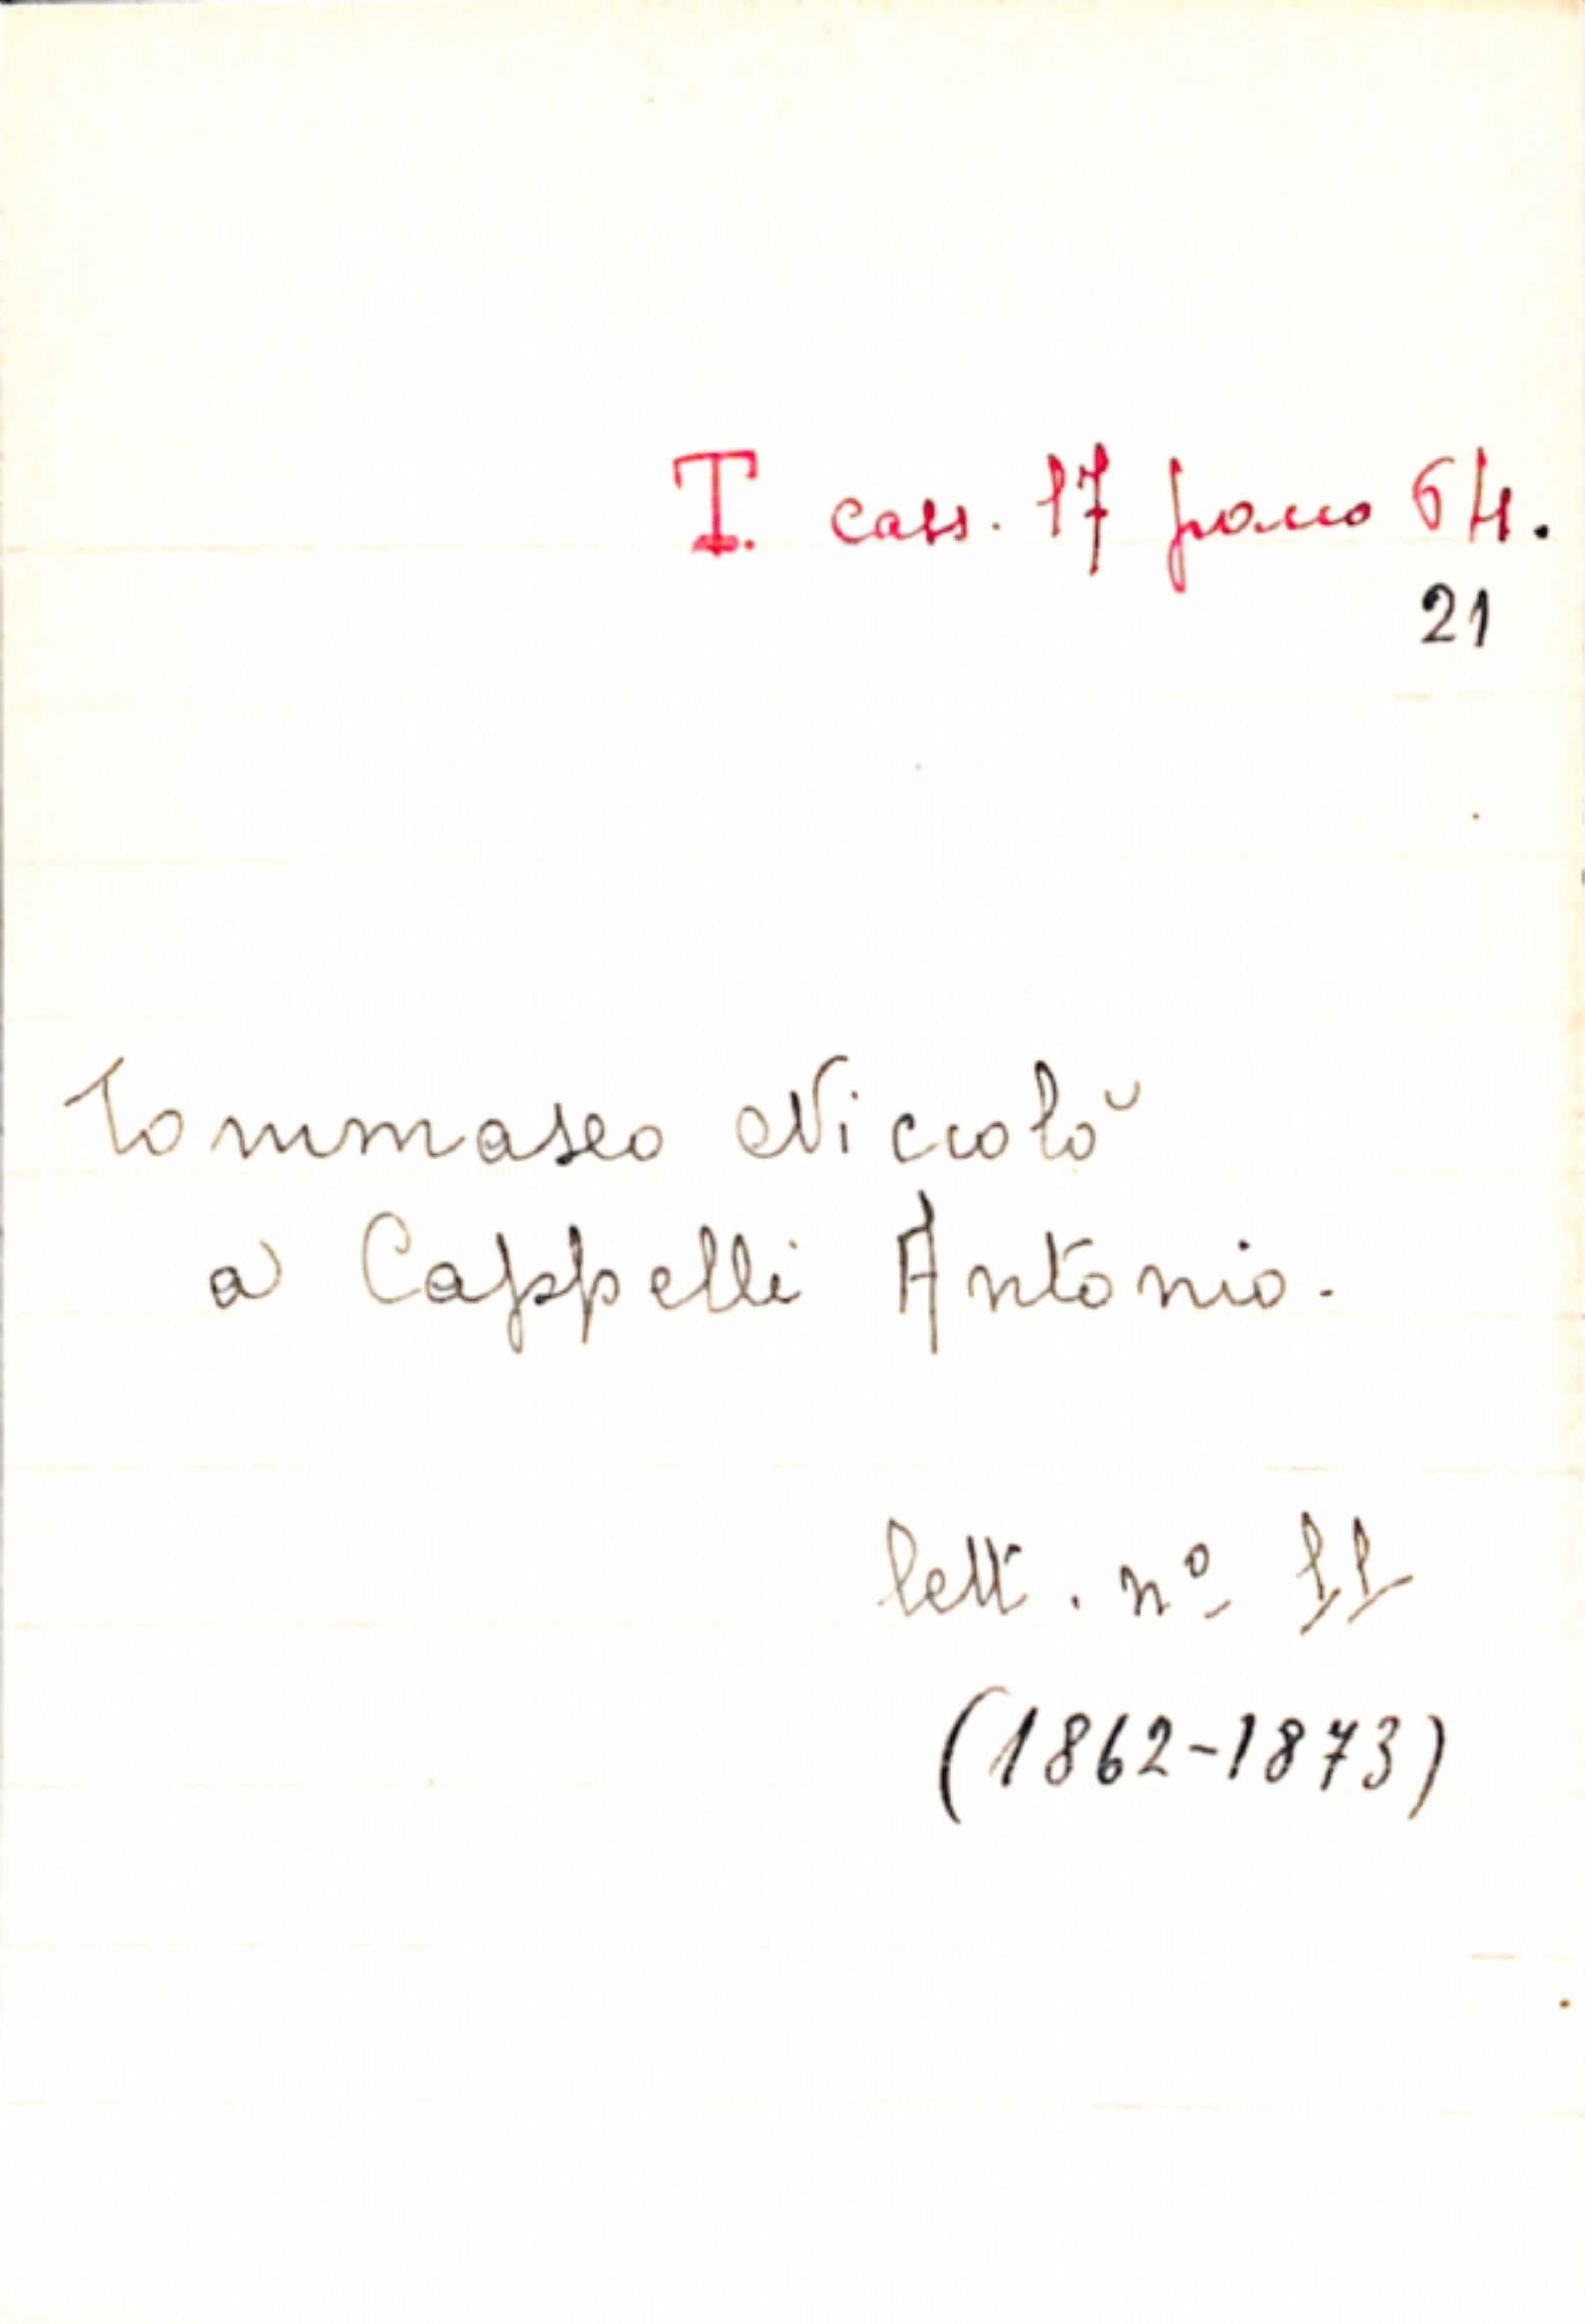 T. cass. 17 pacco 64.
21
Tommaseo Niccolò
a Cappelli Antonio.
lett. nº 11
(1862-1873)